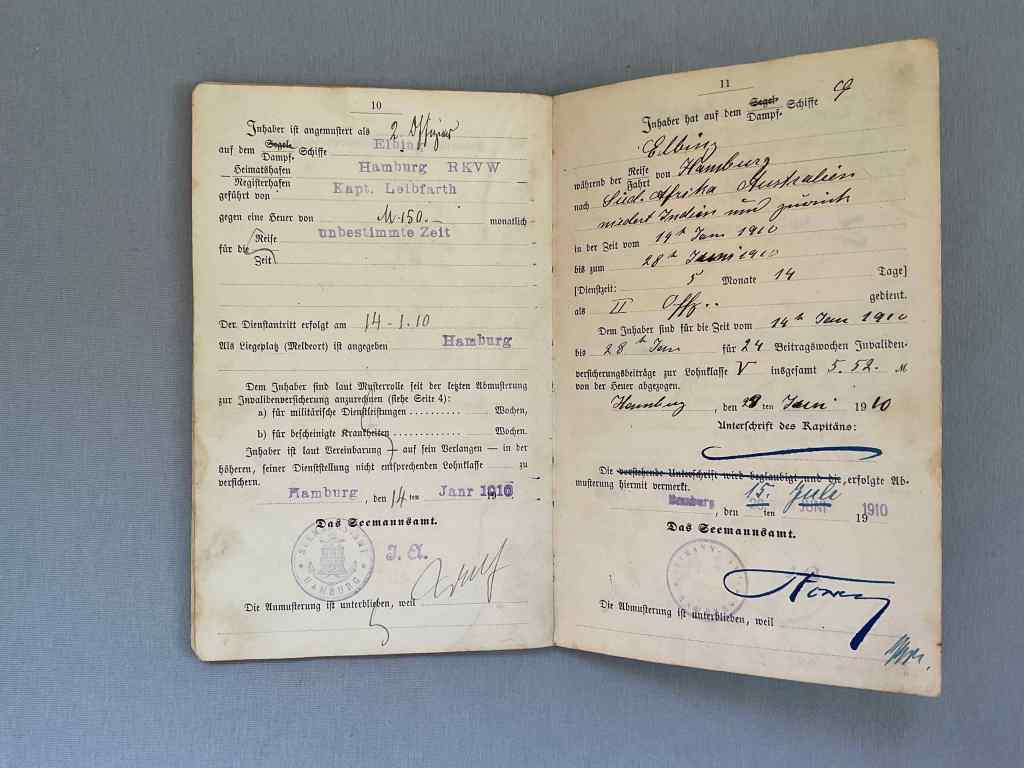 10
Inhaber ist angemustert als 2. Offizier
auf dem Segel- Dampf- Schiffe Elbing
Heimatshafen Registerhafen Hamburg RKVW
geführt von Kapt. Leibfarth
gegen eine Heuer von M 150.- monatlich
für die Reise Zeit unbestimmte Zeit
Der Dienstantritt erfolgt am 14-1.10
Als Liegeplatz (Meldeort) ist angegeben Hamburg
Dem Inhaber sind laut Musterrolle seit der letzten Abmusterung
zur Invalidenversicherung anzurechnen (siehe Seite 4):
a) für militärische Dienstleistungen .......... Wochen,
b) für bescheinigte Krankheiten ............ Wochen.
Inhaber ist laut Vereinbarung — auf sein Verlangen — in der
höheren, seiner Dienststellung nicht entsprechenden Lohnklasse zu
versichern.
Hamburg, den 14 ten Janr 1910
Das Seemannsamt.
SEEMANNSAMT HAMBURG
J. A.
Die Anmusterung ist unterblieben, weil
11
Inhaber hat auf dem Segel- Dampf- Schiffe
Elbing
während der Reise Fahrt von Hamburg
nach Süd. Afrika Australien
niederl Indien und zurück
in der Zeit vom 14th Jan 1910
bis zum 28th Juni 1910
[Dienstzeit: 5 Monate 14 Tage]
als II Offz.. gedient.
Dem Inhaber sind für die Zeit vom 14th Jan 1910
bis 28th Jun für 24 Beitragswochen Invaliden-
versicherungsbeiträge zur Lohnklasse V insgesamt 5.52. M
von der Heuer abgezogen.
Hamburg, den 28 ten Juni 1910
Unterschrift des Kapitäns:
Die vorstehende Unterschrift wird beglaubigt und die erfolgte Ab-
musterung hiermit vermerkt.
Hamburg, den 15. ten Juli JUNI 1910
Das Seemannsamt.
Die Abmusterung ist unterblieben, weil